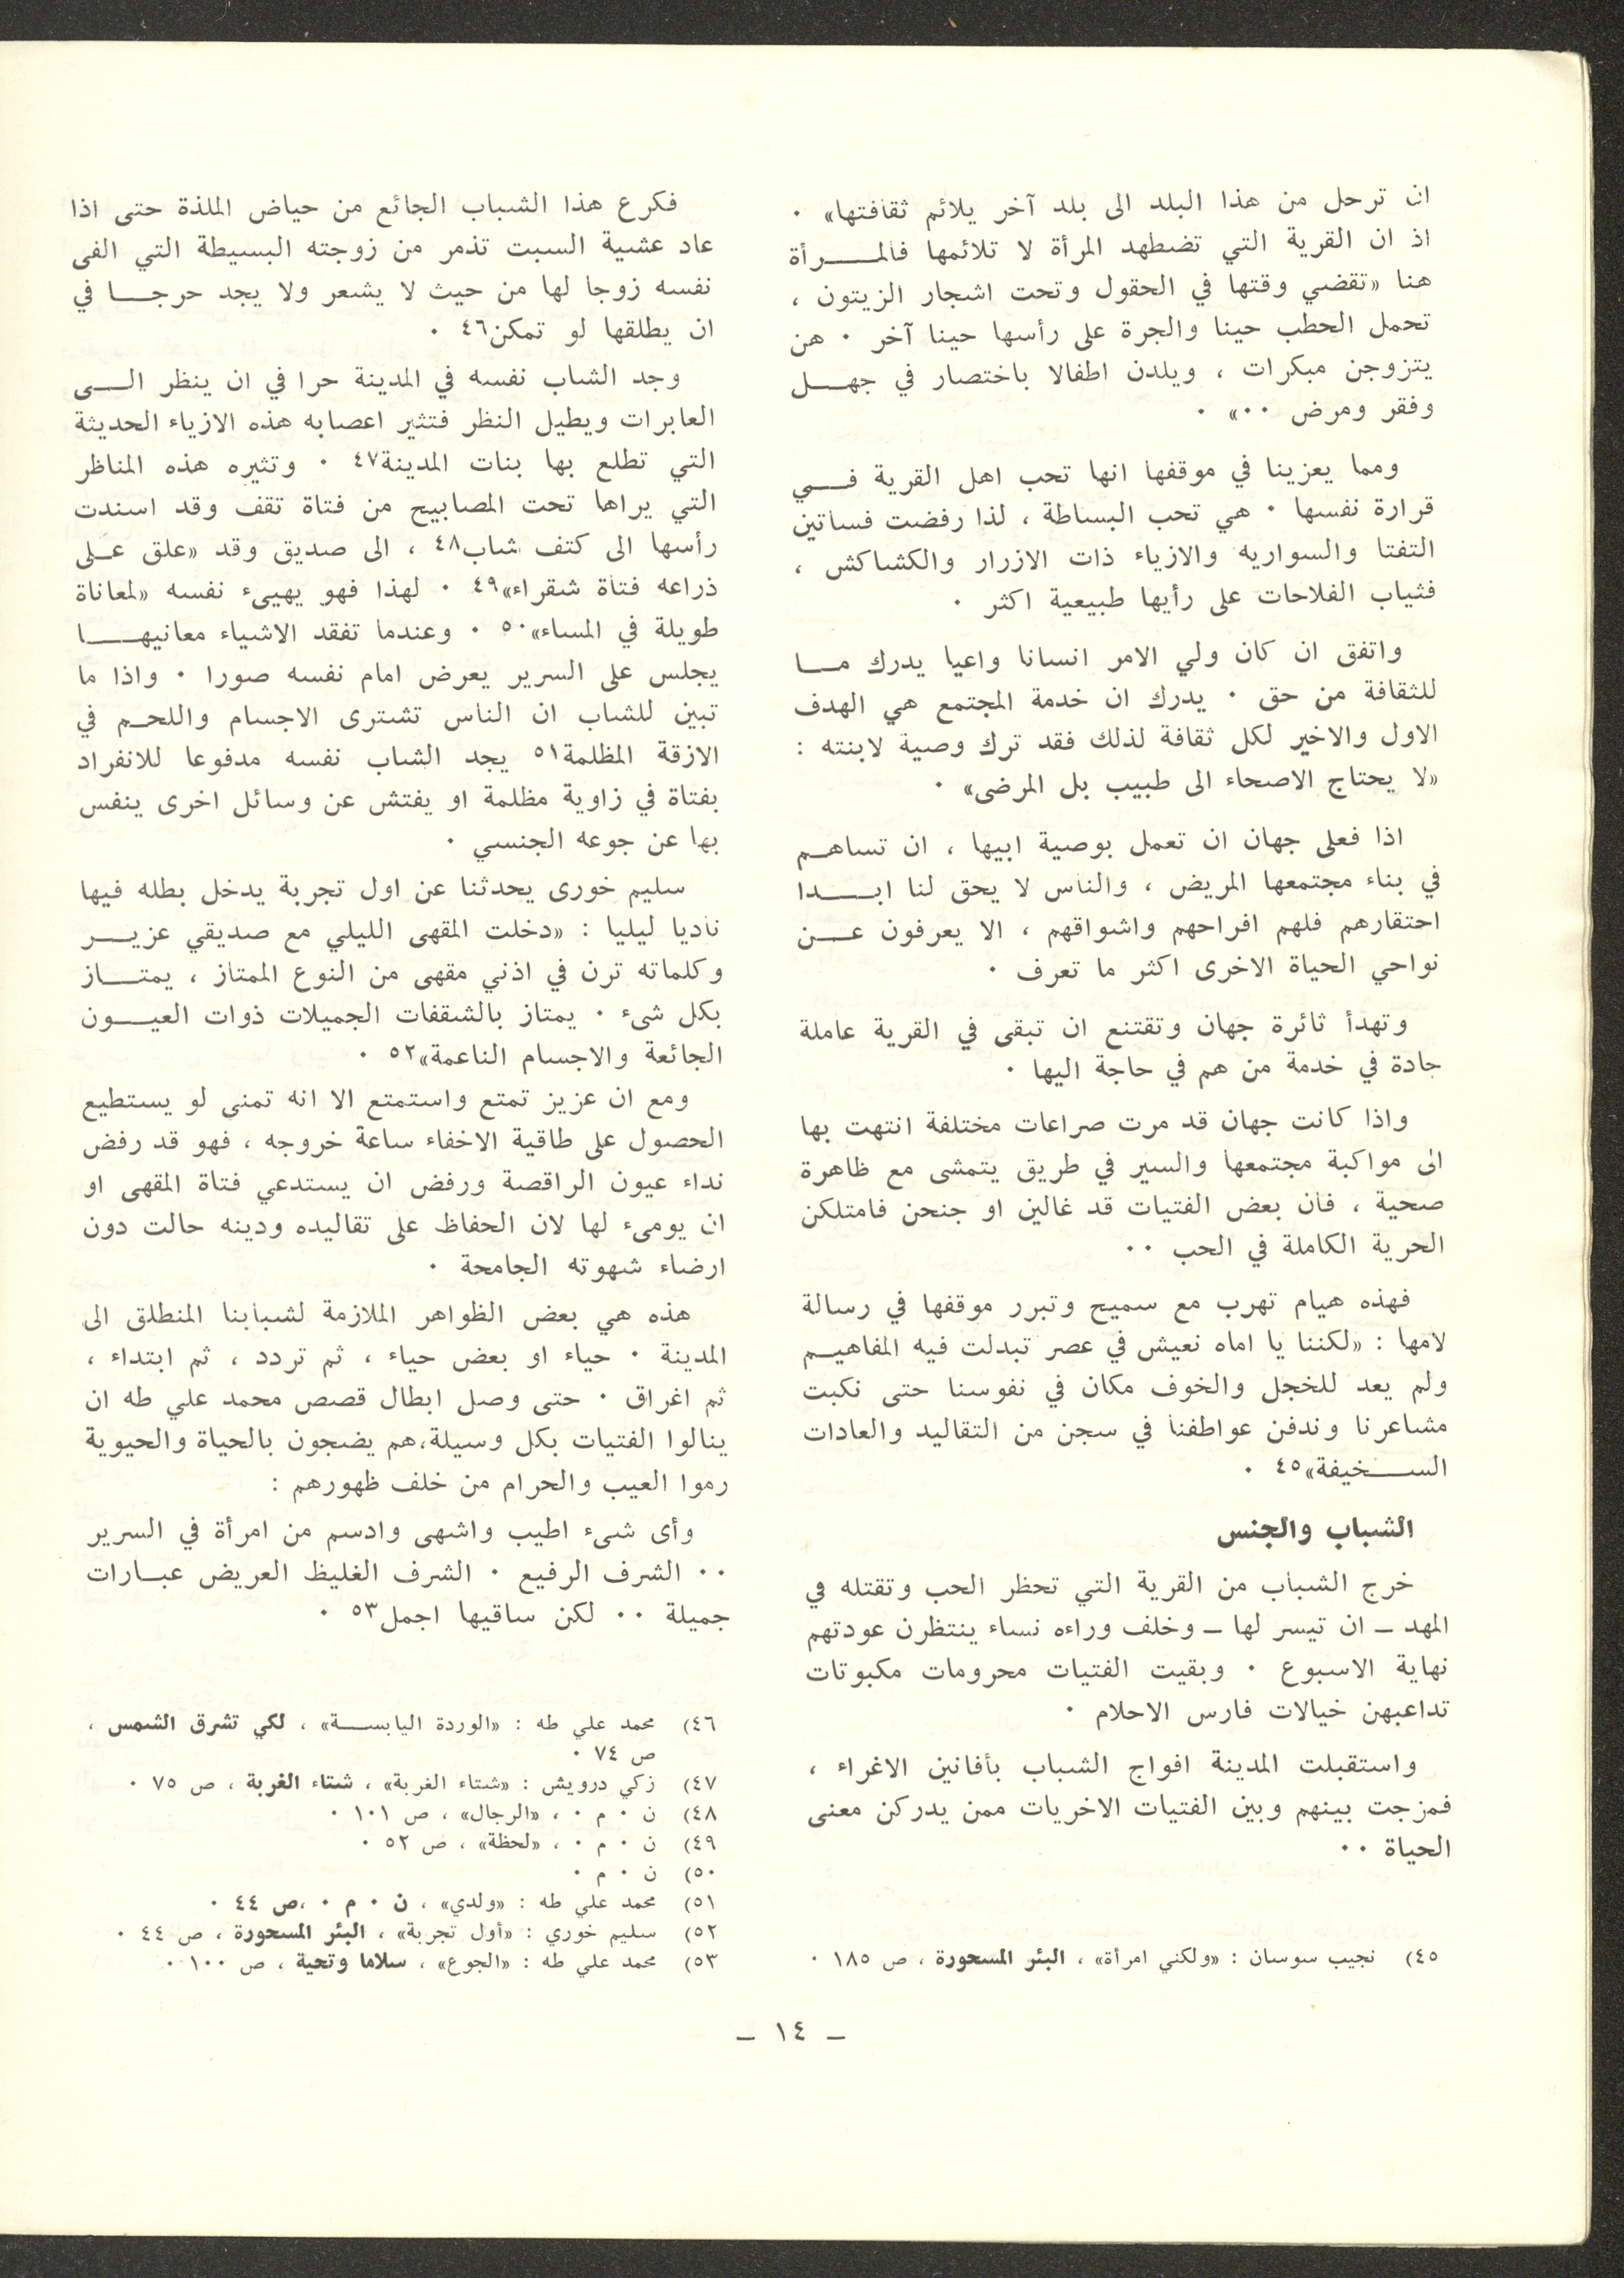 ان ترحل من هذا البلد الى بلد آخر يلائم ثقافتها» ٠
اذ ان القرية التي تضطهد المرأة لا تلائمها فالمـــرأة
هنا «تقضي وقتها في الحقول وتحت اشجار الزيتون ،
تحمل الحطب حينا والجرة على رأسها حينا آخر ٠ هن
يتزوجن مبكرات ، ويلدن اطفالا باختصار في جهـــل
وفقر ومرض ٠٠» ٠
ومما يعزينا في موقفها انها تحب اهل القرية فـــي
قرارة نفسها ٠ هي تحب البساطة ، لذا رفضت فساتين
التفتا والسواريه والازياء ذات الازرار والكشاكش ،
فثياب الفلاحات على رأيها طبيعية اكثر ٠
واتفق ان كان ولي الامر انسانا واعيا يدرك مـــا
للثقافة من حق ٠ يدرك ان خدمة المجتمع هي الهدف
الاول والاخير لكل ثقافة لذلك فقد ترك وصية لابنته :
«لا يحتاج الاصحاء الى طبيب بل المرضى» ٠
اذا فعلى جهان ان تعمل بوصية ابيها ، ان تساهـم
في بناء مجتمعها المريض ، والناس لا يحق لنا ابـــدا
احتقارهم فلهم افراحهم واشواقهم ، الا يعرفون عـــن
نواحي الحياة الاخرى اكثر ما تعرف ٠
وتهدأ ثائرة جهان وتقتنع ان تبقى في القرية عاملة
جادة في خدمة من هم في حاجة اليها ٠
واذا كانت جهان قد مرت صراعات مختلفة انتهت بها
الى مواكبة مجتمعها والسير في طريق يتمشى مع ظاهرة
صحية ، فان بعض الفتيات قد غالين او جنحن فامتلكن
الحرية الكاملة في الحب ٠٠
فهذه هيام تهرب مع سميح وتبرر موقفها في رسالة
لامها : «لكننا يا اماه نعيش في عصر تبدلت فيه المفاهيـم
ولم يعد للخجل والخوف مكان في نفوسنا حتى نكبت
مشاعرنا وندفن عواطفنا في سجن من التقاليد والعادات
الســـخيفة»٤٥ ٠
الشباب والجنس
خرج الشباب من القرية التي تحظر الحب وتقتله في
المهد ـ ان تيسر لها ـ وخلف وراءه نساء ينتظرن عودتهم
نهاية الاسبوع ٠ وبقيت الفتيات محرومات مكبوتات
تداعبهن خيالات فارس الاحلام ٠
واستقبلت المدينة افواج الشباب بأفانين الاغراء ،
فمزجت بينهم وبين الفتيات الاخريات ممن يدركن معنى
الحياة ٠٠
٤٥) نجيب سوسان : «ولكني امرأة» ، البئر المسحورة ، ص ١٨٥ ٠
فكرع هذا الشباب الجائع من حياض الملذة حتى اذا
عاد عشية السبت تذمر من زوجته البسيطة التي الفى
نفسه زوجا لها من حيث لا يشعر ولا يجد حرجـــا في
ان يطلقها لو تمكن٤٦ ٠
وجد الشباب نفسه في المدينة حرا في ان ينظر الـــى
العابرات ويطيل النظر فتثير اعصابه هذه الازياء الحديثة
التي تطلع بها بنات المدينة٤٧ ٠ وتثيره هذه المناظر
التي يراها تحت المصابيح من فتاة تقف وقد اسندت
رأسها الى كتف شاب٤٨ ، الى صديق وقد «علق عـلى
ذراعه فتاة شقراء»٤٩ ٠ لهذا فهو يهيىء نفسه «لمعاناة
طويلة في المساء»٥٠ ٠ وعندما تفقد الاشياء معانيهـــا
يجلس على السرير يعرض امام نفسه صورا ٠ واذا ما
تبين للشباب ان الناس تشترى الاجسام واللحـم في
الازقة المظلمة٥١ يجد الشباب نفسه مدفوعا للانفراد
بفتاة في زاوية مظلمة او يفتش عن وسائل اخرى ينفس
بها عن جوعه الجنسي ٠
سليم خورى يحدثنا عن اول تجربة يدخل بطله فيها
ناديا ليليا : «دخلت المقهى الليلي مع صديقي عزيـــر
وكلماته ترن في اذني مقهى من النوع الممتاز ، يمتـــاز
بكل شىء ٠ يمتاز بالشقفات الجميلات ذوات العيـــون
الجائعة والاجسام الناعمة»٥٢ ٠
ومع ان عزيز تمتع واستمتع الا انه تمنى لو يستطيع
الحصول على طاقية الاخفاء ساعة خروجه ، فهو قد رفض
نداء عيون الراقصة ورفض ان يستدعي فتاة المقهى او
ان يومىء لها لان الحفاظ على تقاليده ودينه حالت دون
ارضاء شهوته الجامحة ٠
هذه هي بعض الظواهر الملازمة لشبابنا المنطلق الى
المدينة ٠ حياء او بعض حياء ، ثم تردد ، ثم ابتداء ،
ثم اغراق ٠ حتى وصل ابطال قصص محمد علي طه ان
ينالوا الفتيات بكل وسيلة،هم يضجون بالحياة والحيوية
رموا العيب والحرام من خلف ظهورهم :
وأى شىء اطيب واشهى وادسم من امرأة في السرير
٠٠ الشرف الرفيع ٠ الشرف الغليظ العريض عبـارات
جميلة ٠٠ لكن ساقيها اجمل٥٣ ٠
٤٦) محمد علي طه : «الوردة اليابســـة» ، لكي تشرق الشمس ،
ص ٧٤ ٠
٤٧) زكي درويش : «شتاء الغربة» ، شتاء الغربة ، ص ٧٥ ٠
٤٨) ن ٠ م ٠ ، «الرجال» ، ص ١٠١ ٠
٤٩) ن ٠ م ٠ ، «لحظة» ، ص ٥٢ ٠
٥٠) ن ٠ م ٠
٥١) محمد علي طه : «ولدي» ، ن ٠ م ٠ ،ص ٤٤ ٠
٥٢) سليم خوري : «أول تجربة» ، البئر المسحورة ، ص ٤٤ ٠
٥٣) محمد علي طه : «الجوع» ، سلاما وتحية ، ص ١٠٠ ٠
ـ ١٤ ـ